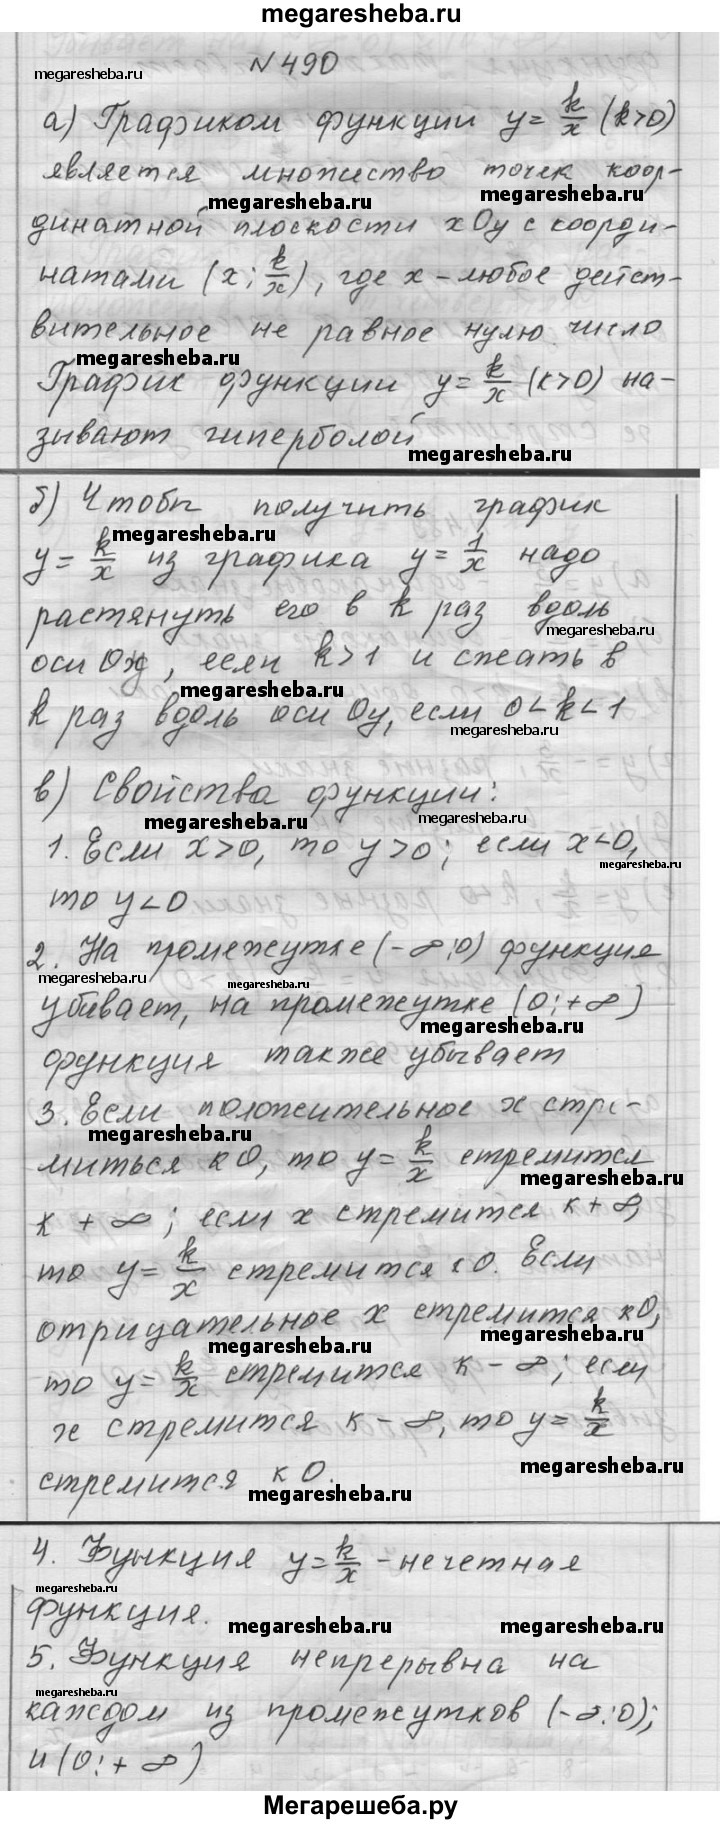 megaresheba.ru
N 490
megaresheba.ru
а) Графиком функции y= k/x (k>0)
является множество точек коор-
megaresheba.ru megaresheba.ru
динатной плоскости xOy с коорди-
натами (x; k/x), где x – любое дейст-
вительное не равное нулю число
megaresheba.ru
График функции y= k/x (k>0) на-
зывают гиперболой
megaresheba.ru
б) Чтобы получить график
megaresheba.ru
y= k/x из графика y= 1/x надо
растянуть его в k раз вдоль
megaresheba.ru
оси, если k>1 и сжать в
megaresheba.ru
k раз вдоль оси Oy, если 0<k<1
megaresheba.ru
в) Свойства функции:
megaresheba.ru megaresheba.ru
1. Если x>0, то y>0; если x<0,
megaresheba.ru
то y<0
2. На промежутке (-∞;0) функция
megaresheba.ru megaresheba.ru
убывает, на промежутке (0;+∞)
megaresheba.ru
функция также убывает
3. Если положительное x стре-
megaresheba.ru
миться к 0, то y= k/x стремится
megaresheba.ru
к +∞; если x стремится к +∞,
то y= k/x стремится к 0. Если
отрицательное x стремится к 0,
megaresheba.ru megaresheba.ru
то y= k/x стремится к -∞; если
x стремится к -∞, то y= k/x
megaresheba.ru
стремится к 0.
megaresheba.ru
4. Функция y= k/x – нечетная
megaresheba.ru
функция.
megaresheba.ru megaresheba.ru
5. Функция непрерывна на
megaresheba.ru
каждом из промежутков (-∞;0);
и (0;+∞)
Мегарешеба.ру